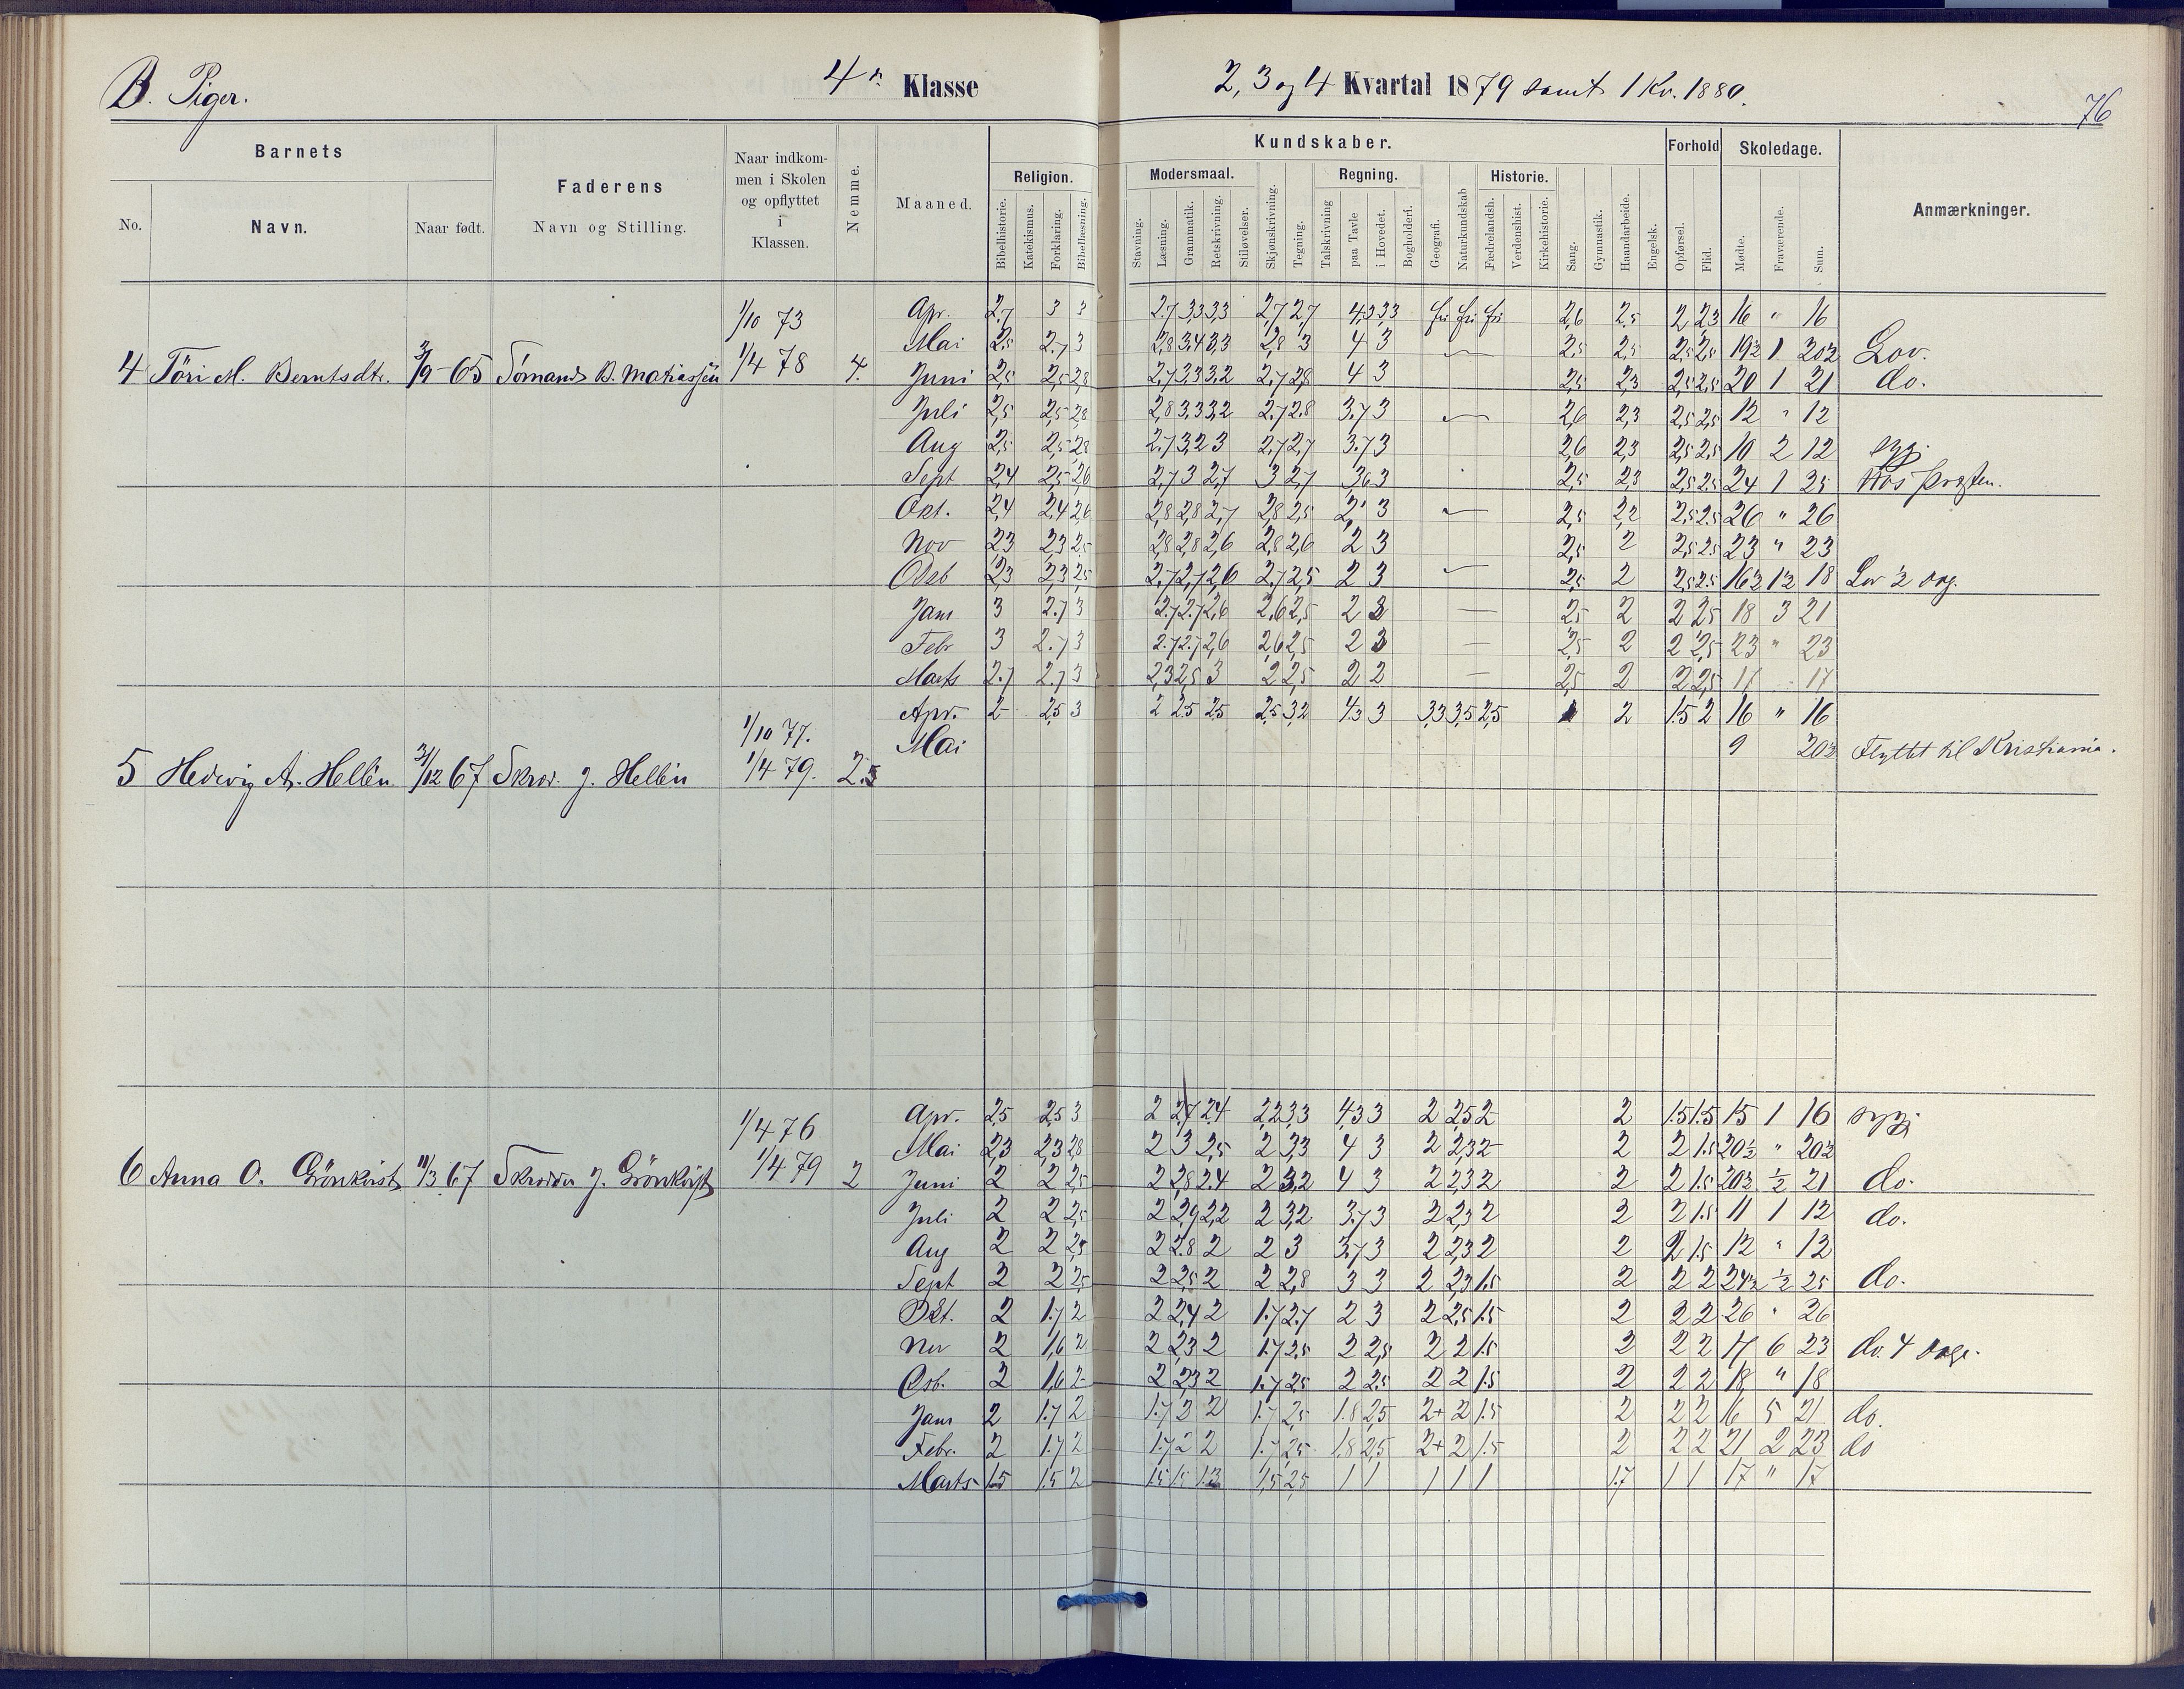 B. Piger.
4de Klasse
2, 3 og 4 Kvartal 1879 samt 1 Kv. 1880.
76
Barnets
No.
Navn.
Naar født.
Faderens
Navn og Stilling.
Naar indkom-
men i Skolen
og opflyttet
i
Klassen.
Nemme.
Maaned.
Kundskaber.
Religion.
Bibelhistorie.
Katekismus.
Forklaring.
Bibellæsning.
Modersmaal.
Stavning.
Læsning.
Grammatik.
Retskrivning.
Stiløvelser.
Skjønskrivning.
Tegning.
Regning.
Talskrivning
paa Tavle
i Hovedet.
Bogholderi.
Geografi.
Naturkundskab
Historie.
Fædrelandsh.
Verdenshist.
Kirkehistorie.
Sang.
Gymnastik.
Haandarbeide.
Engelsk.
Forhold
Opførsel.
Flid.
Skoledage.
Mødte.
Fraværende.
Sum.
Anmærkninger.
4 Töri M. Berntsdtr. 3/9-65 Sømands B. Matiassen 1/10 73 1/4 78 4.
Apr. 2,7 3 3 2.7 3,3 3,3 2,7 2,7 4,3 3,3 fri fri fri 2,6 2,5 2 2,3 16 " 16
Mai 2,5 2.7 3 2,8 3.4 3,3 2,8 3 4 3 2,5 2,5 2,5 2,5 19½ 1 20½ Lov.
Juni 2,5 2,5 2,8 2,7 3,3 3,2 2.7 2,8 4 3 2,5 2,3 2,5 2,5 20 1 21 do.
Juli 2,5 2,5 2,8 2,8 3,3 3,2 2.7 2.8 3.7 3 2,6 2,3 2,5 2,5 12 " 12
Aug 2,5 2,5 2,8 2.7 3,2 3 2,7 2,7 3.7 3 2,6 2,3 2,5 2,5 10 2 12 syg.
Sept 2,4 2,5 2,6 2,7 3 2,7 3 2,7 3,6 3 2,5 2,3 2,5 2,5 24 1 25 Hos Præsten.
Okt. 2,4 2,4 2,6 2,8 2,8 2,7 2,8 2,5 2 3 2,5 2,2 2,5 2,5 26 " 26
Nov 2,3 2,3 2,5 2,8 2,8 2,6 2,8 2,6 2 3 2,5 2 2,5 2,5 23 " 23
Dsb 2,3 2,3 2,5 2,7 2,7 2,6 2.7 2,5 2 3 2,5 2 2,5 2,5 16½ 1½ 18 Lov ½ dag.
Janr 3 2.7 3 2.7 2.7 2,6 2.6 2,5 2 3 2,5 2 2 2,5 18 3 21
Febr 3 2.7 3 2.7 2.7 2,6 2,6 2,5 2 3 2,5 2 2 2,5 23 " 23
Marts 2.7 2.7 3 2,3 2,5 3 2 2,5 2 2 2,5 2 2 2,5 17 17
5 Hedvig A. Hellén 31/12 67 Skræd. J. Hellén 1/10 77. 1/4 79. 2.5
Apr. 2 2,5 3 2 2,5 2,5 2,5 3,2 4,3 3 3,3 3,5 2,5 2 1.5 2 16 " 16
Mai 9 20½ Flyttet til Kristiania.
6 Anna O. Grönkvist 11/3 67 Skrædder J. Grönkvist 1/4 76 1/4 79 2
Apr. 2,5 2,5 3 2 2,7 2.4 2,2 3,3 4,3 3 2 2,5 2 2 1.5 1.5 15 1 16 syg
Mai 2,3 2,3 2,8 2 3 2,5 2 3,3 4 3 2 2,3 2 2 2 1.5 20½ " 20½
Juni 2 2 2,5 2 2,8 2.4 2 3,2 4 3 2 2,3 2 2 2 1.5 20½ ½ 21 do.
Juli 2 2 2,5 2 2,9 2,2 2 3,2 3.7 3 2 2,3 2 2 2 1.5 11 1 12 do.
Aug 2 2 2,5 2 2.8 2 2 3 3,7 3 2 2,3 2 2 2 1.5 12 " 12
Sept 2 2 2,5 2 2,5 2 2 2,8 3 3 2 2,3 1.5 2 2 2 24½ ½ 25 do.
Okt. 2 1.7 2 2 2,4 2 1.7 2.7 2 3 2 2,5 1.5 2 2 2 26 " 26
Nov 2 1,6 2 2 2,3 2 1.7 2.5 2 2,5 2 2 1.5 2 2 2 17 6 23 do. 4 dage.
Dsb. 2 1,6 2 2 2,3 2 1.7 2,5 2 2.5 2 2 1.5 2 2 2 18 " 18
Janr 2 1.7 2 1.7 2 2 1.7 2,5 1.8 2,5 2+ 2 1.5 2 2 2 16 5 21 do.
Febr. 2 1.7 2 1.7 2 2 1.7 2,5 1,8 2,5 2+ 2 1.5 2 2 2 21 2 23 do
Marts 1.5 1.5 2 1.5 1.5 1.3 1,5 2,5 1 1 1 1 1 1.7 1 1 17 " 17